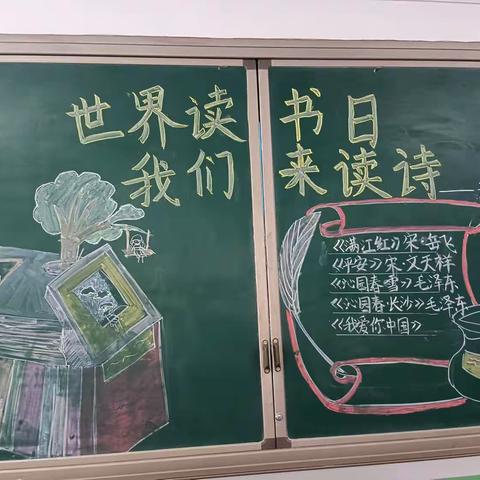 世界读书日
我们来读诗
《满江红》宋·岳飞
《平安》宋·文天祥
《沁园春·雪》毛泽东
《沁园春·长沙》毛泽东
《我爱你中国》